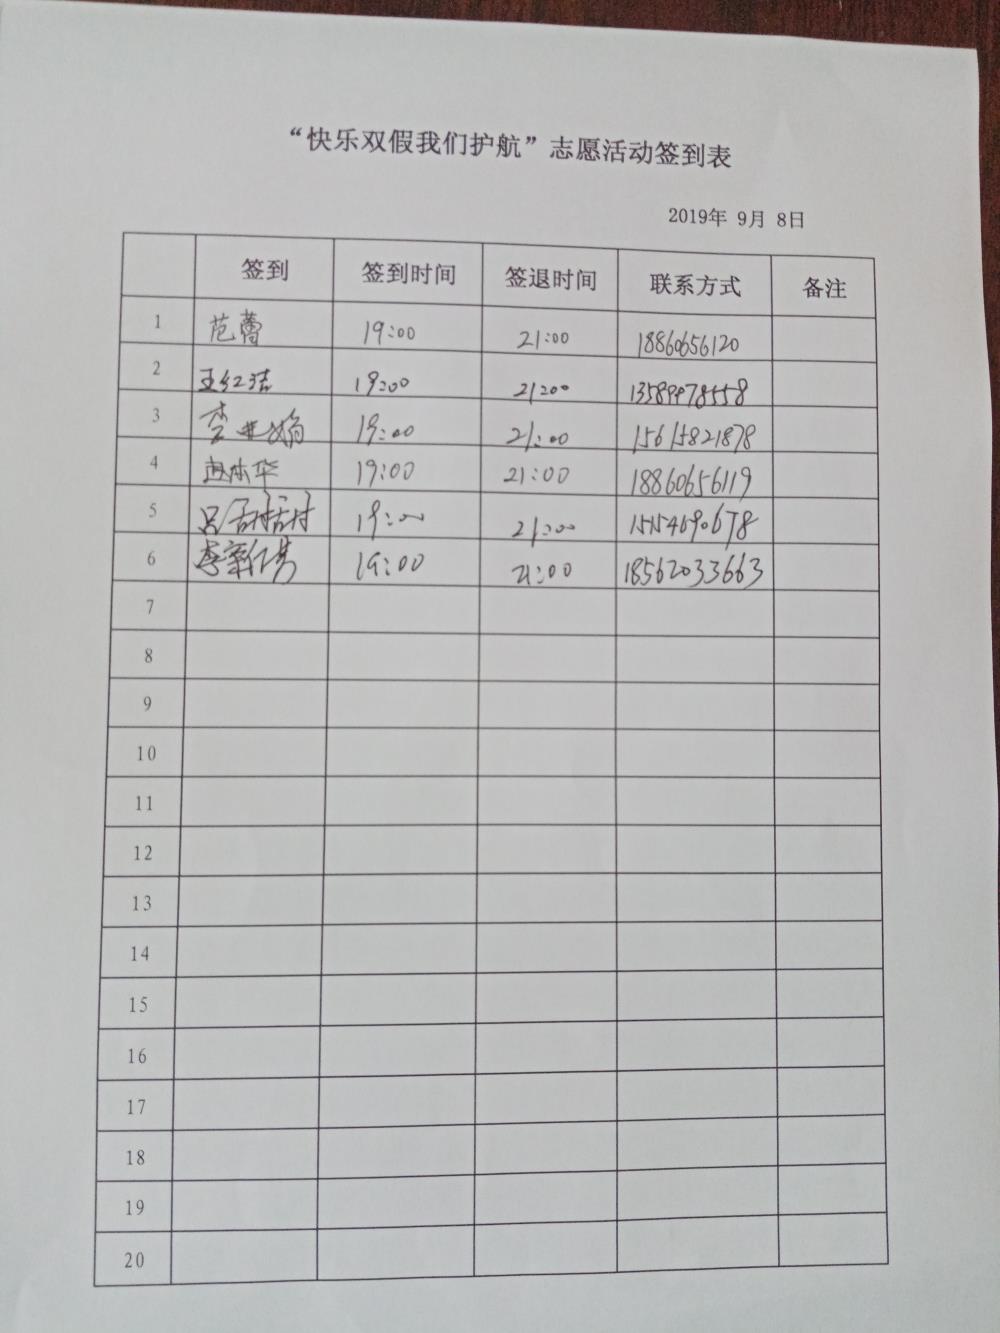 “快乐双假我们护航”志愿活动签到表
2019年 9月 8日
签到 签到时间 签退时间 联系方式 备注
1 范蕾 19:00 21:00 18860656120
2 王红洁 19:00 21:00 13589978558
3 李亚娟 19:00 21:00 15615821878
4 赵本华 19:00 21:00 18860656119
5 19:00 21:00 15154690678
6 19:00 21:00 18562033663
7
8
9
10
11
12
13
14
15
16
17
18
19
20